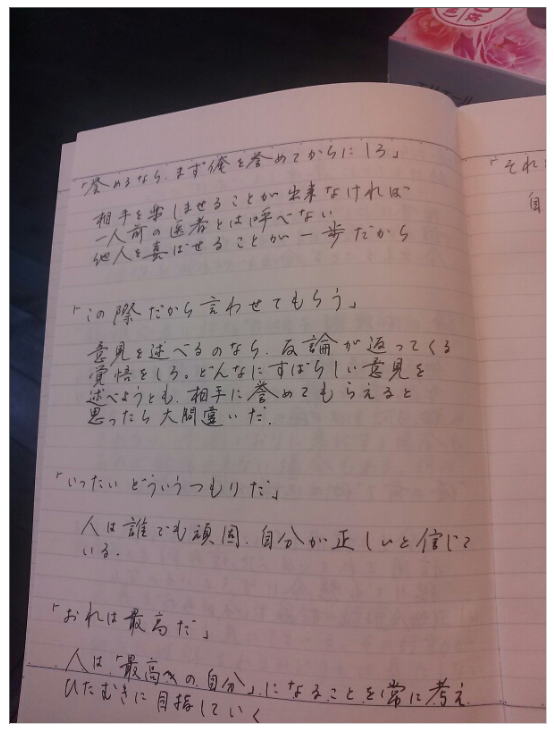 「誉めるなら、まず俺を誉めてからにしろ」
相手を楽しませることが出来なければ
一人前の医者とは呼べない
他人を喜ばせることが一歩だから
「この際だから言わせてもらう」
意見を述べるのなら、反論が返ってくる
覚悟をしろ。どんなにすばらしい意見を
述べようとも、相手に誉めてもらえると
思ったら大間違いだ。
「いったいどういうつもりだ」
人は誰でも頑固、自分が正しいと信じて
いる。
「おれは最高だ」
人は「最高の自分」になることを常に考え
ひたむきに目指していく
「それ
自